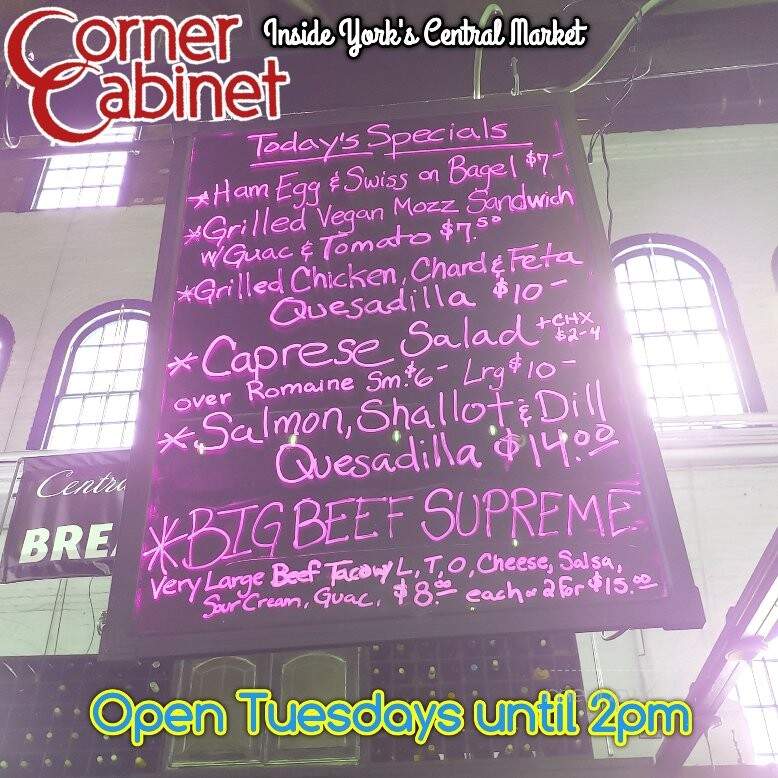 Corner Cabinet
Inside York's Central Market
Today's Specials
*Ham Egg & Swiss on Bagel $7-
*Grilled Vegan Mozz Sandwich
w/Guac & Tomato $7.50
*Grilled Chicken, Chard & Feta
Quesadilla $10-
*Caprese Salad +CHX $2-4
over Romaine Sm. $6- Lrg $10-
*Salmon, Shallot & Dill
Quesadilla $14.00
*BIG BEEF SUPREME
Very Large Beef Taco w/ L, T, O, Cheese, Salsa,
Sour Cream, Guac, $8.00 each or 2 for $15.00
BRE
Open Tuesdays until 2pm